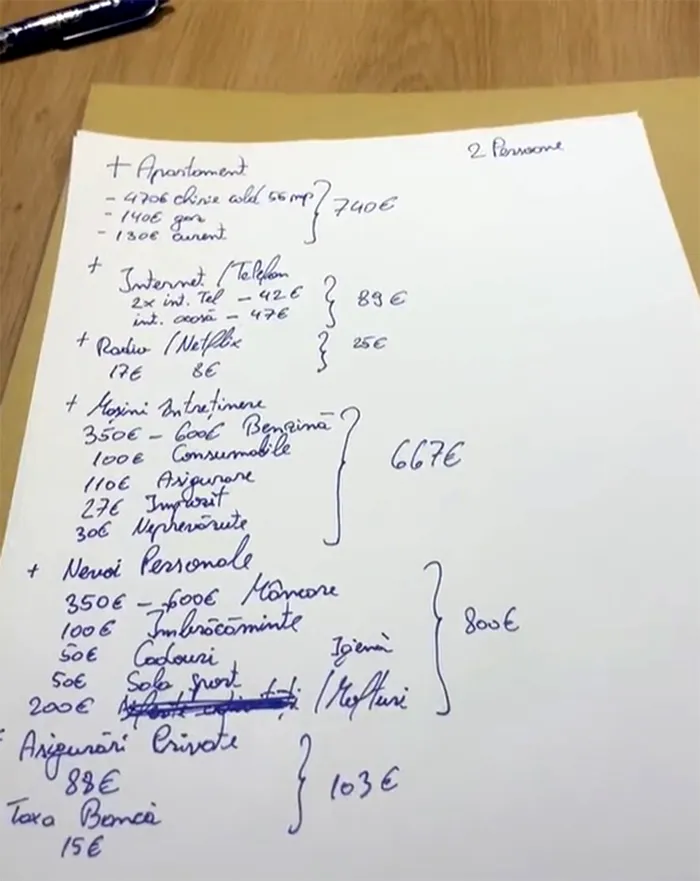 2 Persoane
+ Apartament
- 470€ chirie cald 56 mp
- 140€ gaz
- 130€ curent
740€
+ Internet / Telefon
2x int. Tel - 42€
int. acasă - 47€
89€
+ Radio / Netflix
17€ 8€
25€
+ Mașini Întreținere
350€ - 600€ Benzină
100€ Consumabile
110€ Asigurare
27€ Impozit
30€ Neprevăzute
667€
+ Nevoi Personale
350€ - 600€ Mâncare
100€ Îmbrăcăminte
50€ Cadouri
50€ Sala sport
200€ Igienă / Mofturi
800€
Asigurări Private
88€
Taxa Bancă
15€
103€